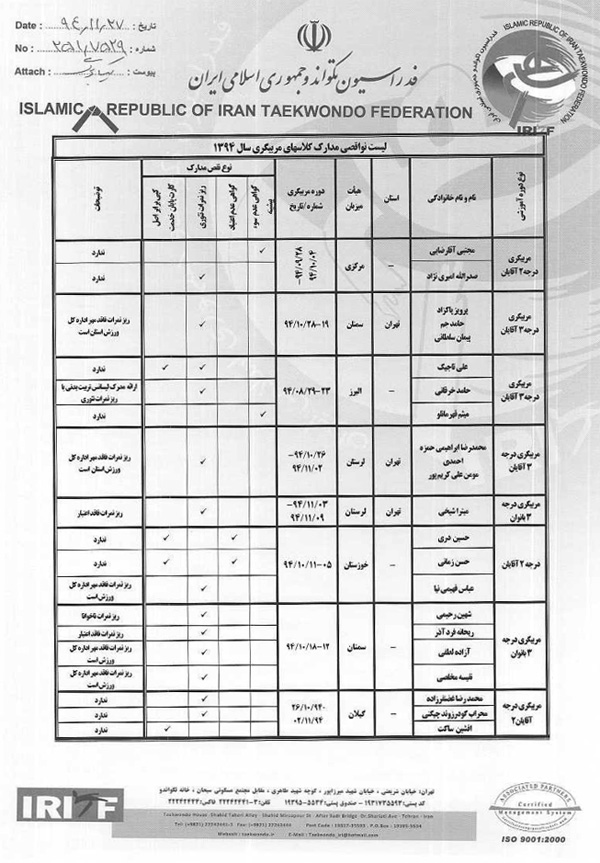 Date : ۹۴,۱۱,۲۷ : تاریخ
No : ۲۵۱,۷۵۲۹ : شماره
Attach : : پیوست
ISLAMIC REPUBLIC OF IRAN TAEKWONDO FEDERATION
فدراسیون تکواندو جمهوری اسلامی ایران
ISLAMIC REPUBLIC OF IRAN TAEKWONDO FEDERATION
IRITF
لیست نواقصی مدارک کلاسهای مربیگری سال ۱۳۹۴
نوع دوره آموزشی نام و نام خانوادگی استان هیات میزبان دوره مربیگری شماره/تاریخ نوع نقص مدارک توضیحات
گواهی عدم سوء پیشینه گواهی عدم اعتیاد ریز نمرات تئوری کارت پایان خدمت کپی برابر اصل
مربیگری درجه ۲ آقایان مجتبی آقارضایی – مرکزی ۹۴/۰۹/۲۸– ۹۴/۱۰/۰۴ ✓ ندارد
صدرالله امیری نژاد ✓ ندارد
مربیگری درجه ۳ آقایان پرویز پاکزاد حامد جم پیمان سلطانی تهران سمنان ۹۴/۱۰/۲۸-۱۹ ✓ ریز نمرات فاقد مهر اداره کل ورزش استان است
مربیگری درجه ۳ آقایان علی تاجیک – البرز ۹۴/۰۸/۲۹-۲۳ ✓ ✓ ندارد
حامد خرقانی ✓ ارائه مدرک لیسانس تربیت بدنی یا ریز نمرات تئوری
میثم قهرمانلو ✓ ندارد
مربیگری درجه ۳ آقایان محمدرضا ابراهیمی حمزه احمدی مومن علی کریم پور تهران لرستان ۹۴/۱۰/۲۶– ۹۴/۱۱/۰۲ ✓ ریز نمرات فاقد مهر اداره کل ورزش استان است
مربیگری درجه ۳ بانوان میترا شیخی تهران لرستان ۹۴/۱۱/۰۳– ۹۴/۱۱/۰۹ ✓ ریز نمرات فاقد اعتبار
درجه ۲ آقایان حسین دری – خوزستان ۹۴/۱۰/۱۱-۰۵ ✓ ✓ ندارد
حسن زمانی ✓ ✓ ندارد
عباس فهیمی نیا ✓ ریز نمرات فاقد مهر اداره کل ورزش است
مربیگری درجه ۳ بانوان شهین رحیمی – سمنان ۹۴/۱۰/۱۸-۱۲ ✓ ریز نمرات ناخوانا
ریحانه فرد آذر ✓ ریز نمرات فاقد اعتبار
آزاده لطفی ✓ ریز نمرات فاقد مهر اداره کل ورزش است
نفیسه مخلصی ✓ ریز نمرات فاقد مهر اداره کل ورزش است
مربیگری درجه ۲ آقایان محمد رضا غضنفرزاده – گیلان ۲۶/۱۰/۹۴- ۰۲/۱۱/۹۴ ✓ ندارد
محراب گودرزوند چیکنی ✓ ندارد
افشین ساکت ✓ ندارد
تهران، خیابان شریعتی، خیابان شهید میرزاپور، کوچه شهید طاهری، مقابل مجتمع مسکونی سبحان، خانه تکواندو
کد پستی: ۱۹۳۱۷۳۵۵۹۳ - صندوق پستی: ۵۵۳۴-۱۹۳۹۵ تلفن: ۳-۲۲۲۴۴۴۴۱ فاکس: ۲۲۲۴۲۴۴۴
IRITF
ASSOCIATED PARTNERS
Certified
Management System
ISO 9001:2000